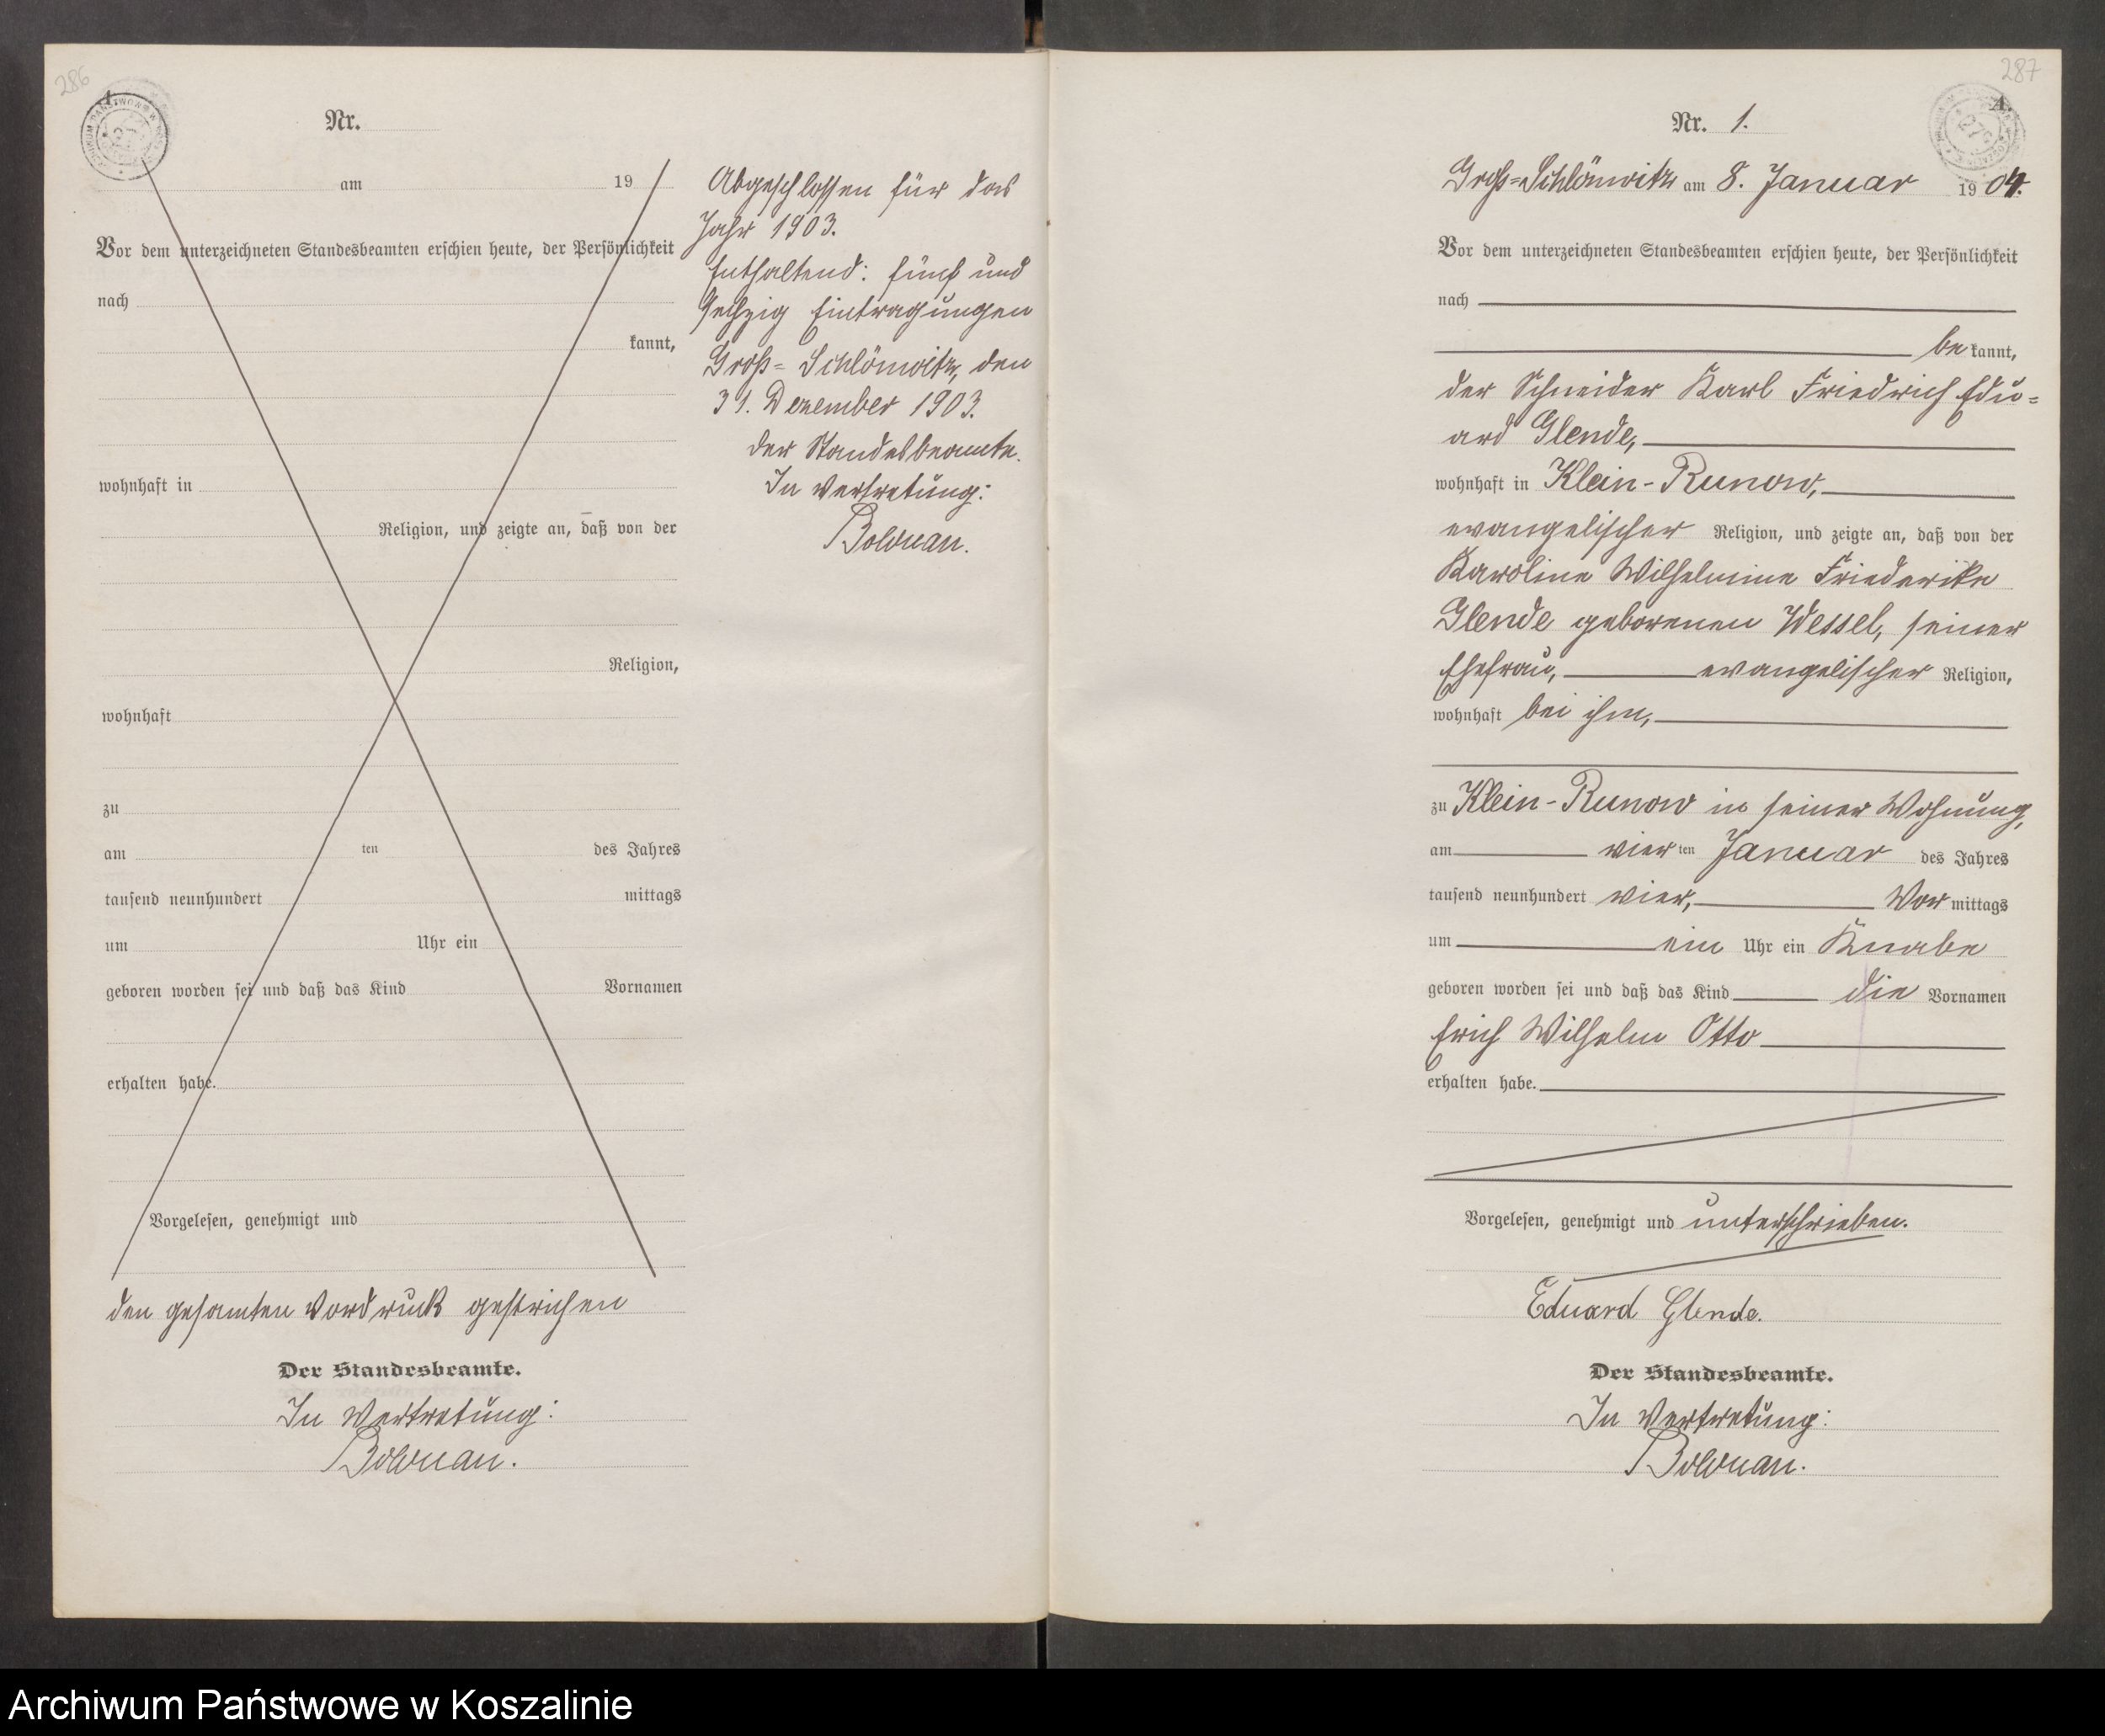 286
A.
Nr.
am 19
Vor dem unterzeichneten Standesbeamten erschien heute, der Persönlichkeit
nach
kannt,
wohnhaft in
Religion, und zeigte an, daß von der
Religion,
wohnhaft
zu
am ten des Jahres
tausend neunhundert mittags
um Uhr ein
geboren worden sei und daß das Kind Vornamen
erhalten habe.
Vorgelesen, genehmigt und
den gesamten Vordruck gestrichen
Der Standesbeamte.
In Vertretung:
Abgeschlossen für das
Jahr 1903.
Enthaltend: fünf und
sechzig Eintragungen
Groß-Schlönwitz, den
31. Dezember 1903.
Der Standesbeamte.
In Vertretung:
287
A.
Nr. 1.
Groß-Schlönwitz am 8. Januar 1904.
Vor dem unterzeichneten Standesbeamten erschien heute, der Persönlichkeit
nach
bekannt,
der Schneider Karl Friedrich Edu-
ard Glende,
wohnhaft in Klein-Runow,
evangelischer Religion, und zeigte an, daß von der
Karoline Wilhelmine Friederike
Glende geborenen Wessel, seiner
Ehefrau, evangelischer Religion,
wohnhaft bei ihm,
zu Klein-Runow in seiner Wohnung,
am vierten Januar des Jahres
tausend neunhundert vier, Vormittags
um ein Uhr ein Knabe
geboren worden sei und daß das Kind die Vornamen
Erich Wilhelm Otto
erhalten habe.
Vorgelesen, genehmigt und unterschrieben.
Eduard Glende.
Der Standesbeamte.
In Vertretung:
Archiwum Państwowe w Koszalinie